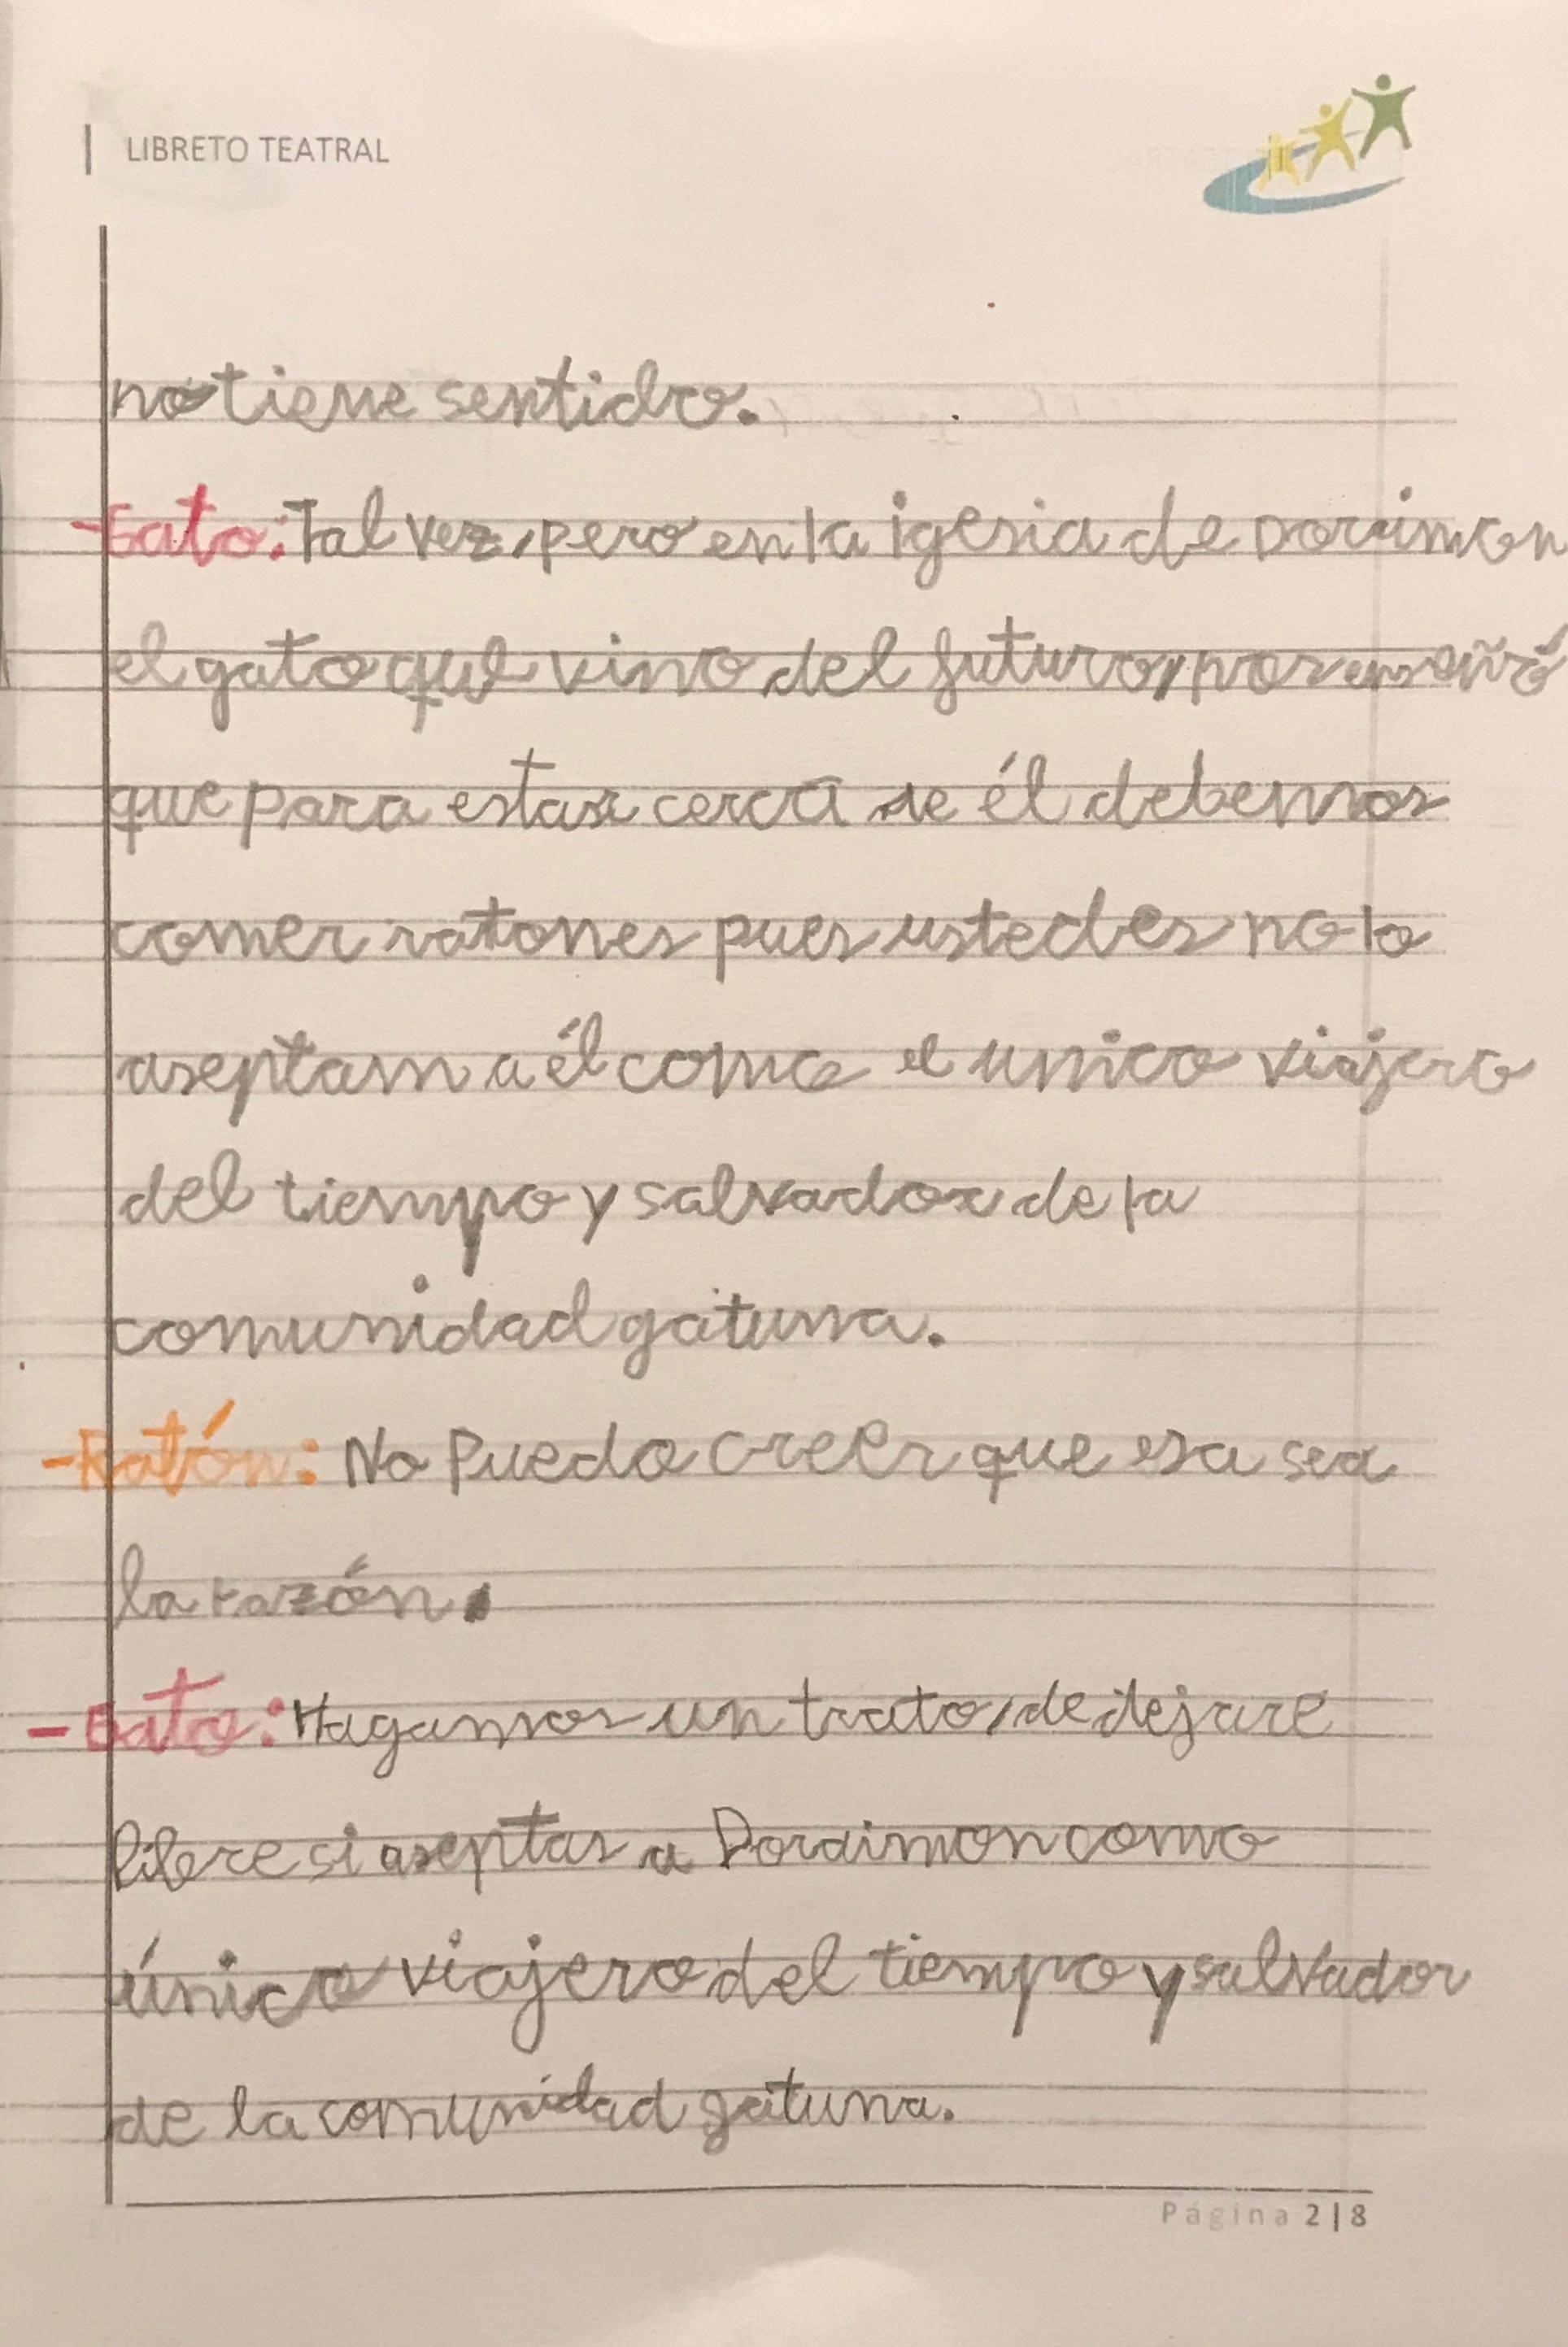 LIBRETO TEATRAL
no tiene sentido.
-Gato: Tal vez, pero en la igesia de Doraimon
el gato que vino del futuro, nos enseñó
que para estar cerca de él debemos
comer ratones pues ustedes no lo
aseptam a él como el unico viajero
del tiempo y salvador de la
comunidad gatuna.
-Ratón: No Puedo creer que esa sea
la razón.
-Gato: Hagamos un trato, de dejaré
libre si aseptas a Doraimon como
único viajero del tiempo y salvador
de la comunidad gatuna.
Página 2|8